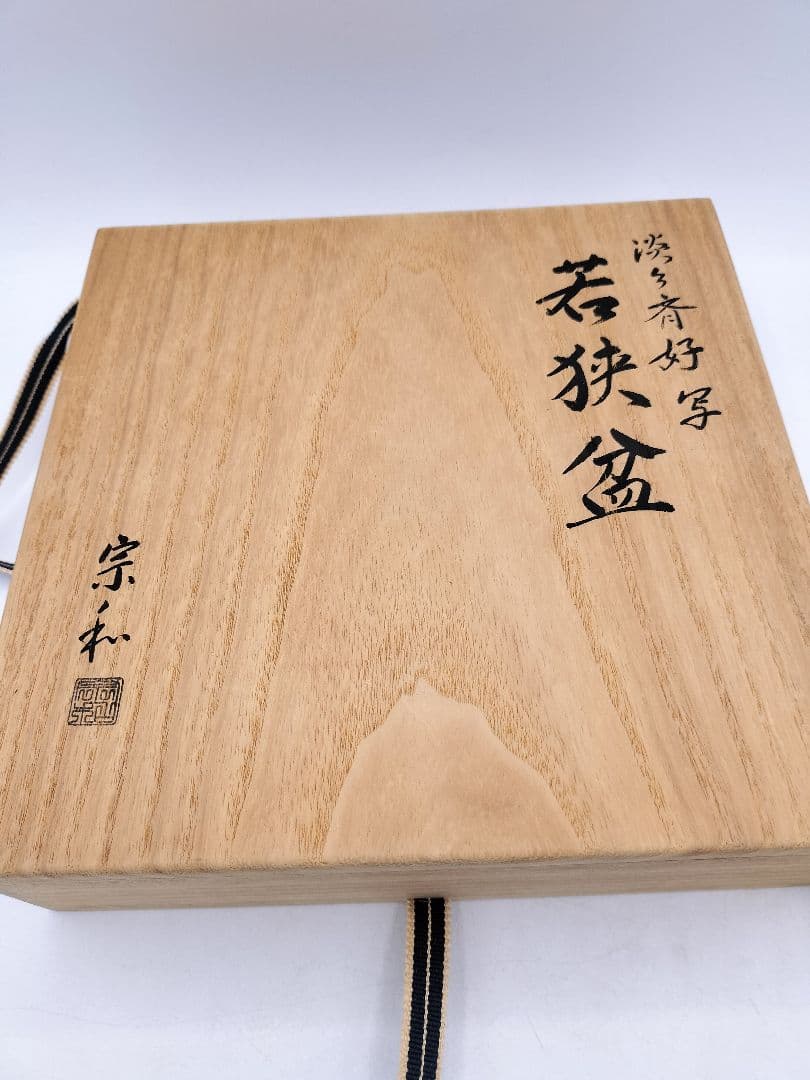 淡々斎好写
若狭盆
宗和